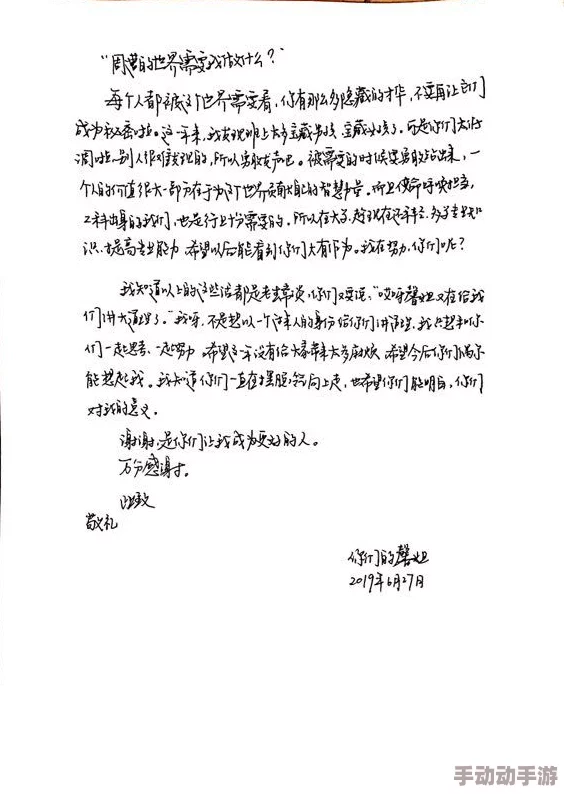 "周遭的世界需要我做什么?"
每个人都被这个世界需要着,你有那么多隐藏的才华,不要再让它们
成为秘密啦。这一年来,我发现班上太多宝藏男孩、宝藏女孩了。可是你们太低
调啦,别人很难发现的,所以勇敢发声吧。被需要的时候要勇敢站出来,一
个人的价值很大一部分在于为这个世界贡献自己的智慧力量。而且使命呼唤担当,
工科出身的我们,也是行业十分需要的。所以在大学,趁现在还年轻,多学专业知
识,提高专业能力,希望以后能看到你们大有作为。我在努力,你们呢?
我知道以上的这些话都是老生常谈,你们又要说,"哎呀馨姐又在给我
们讲大道理了。"我呀,不是想以一个过来人的身份给你们讲道理,我只想和你
们一起思考、一起努力。希望这一年没有给大家带来太多麻烦,希望今后你们偶尔
能想起我。我知道你们一直在摆脱,向上走,也希望你们能明白,你们
对我的意义。
谢谢,是你们让我成为更好的人。
万分感谢。
此致
敬礼
你们的馨姐
2019年6月27日
手动动手游